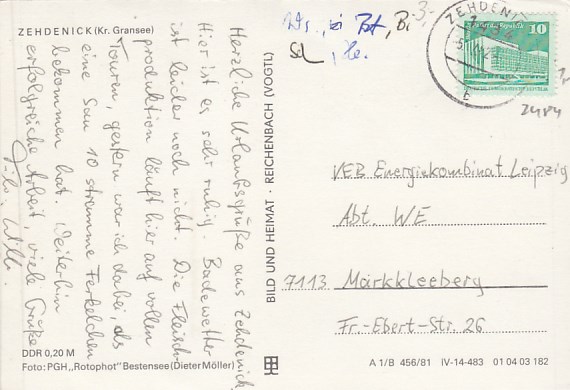 ZEHDENICK (Kr. Gransee)
Herzliche Urlaubsgrüße aus Zehdenick.
Hier ist es sehr ruhig. Badewetter
ist leider noch nicht. Die Fleisch-
produktion läuft hier auf vollen
Touren, gestern war ich dabei als
eine Sau 10 stramme Ferkelchen
bekommen hat. Weiterhin
erfolgreiche Arbeit, viele Grüße
DDR 0,20 M
Foto: PGH „Rotophot" Bestensee (Dieter Möller)
BILD UND HEIMAT · REICHENBACH (VOGTL)
ZEHDENI
10
VEB Energiekombinat Leipzig
Abt. WE
7113 Markkleeberg
Fr.-Ebert-Str. 26
A 1/B 456/81 IV-14-483 01 04 03 182